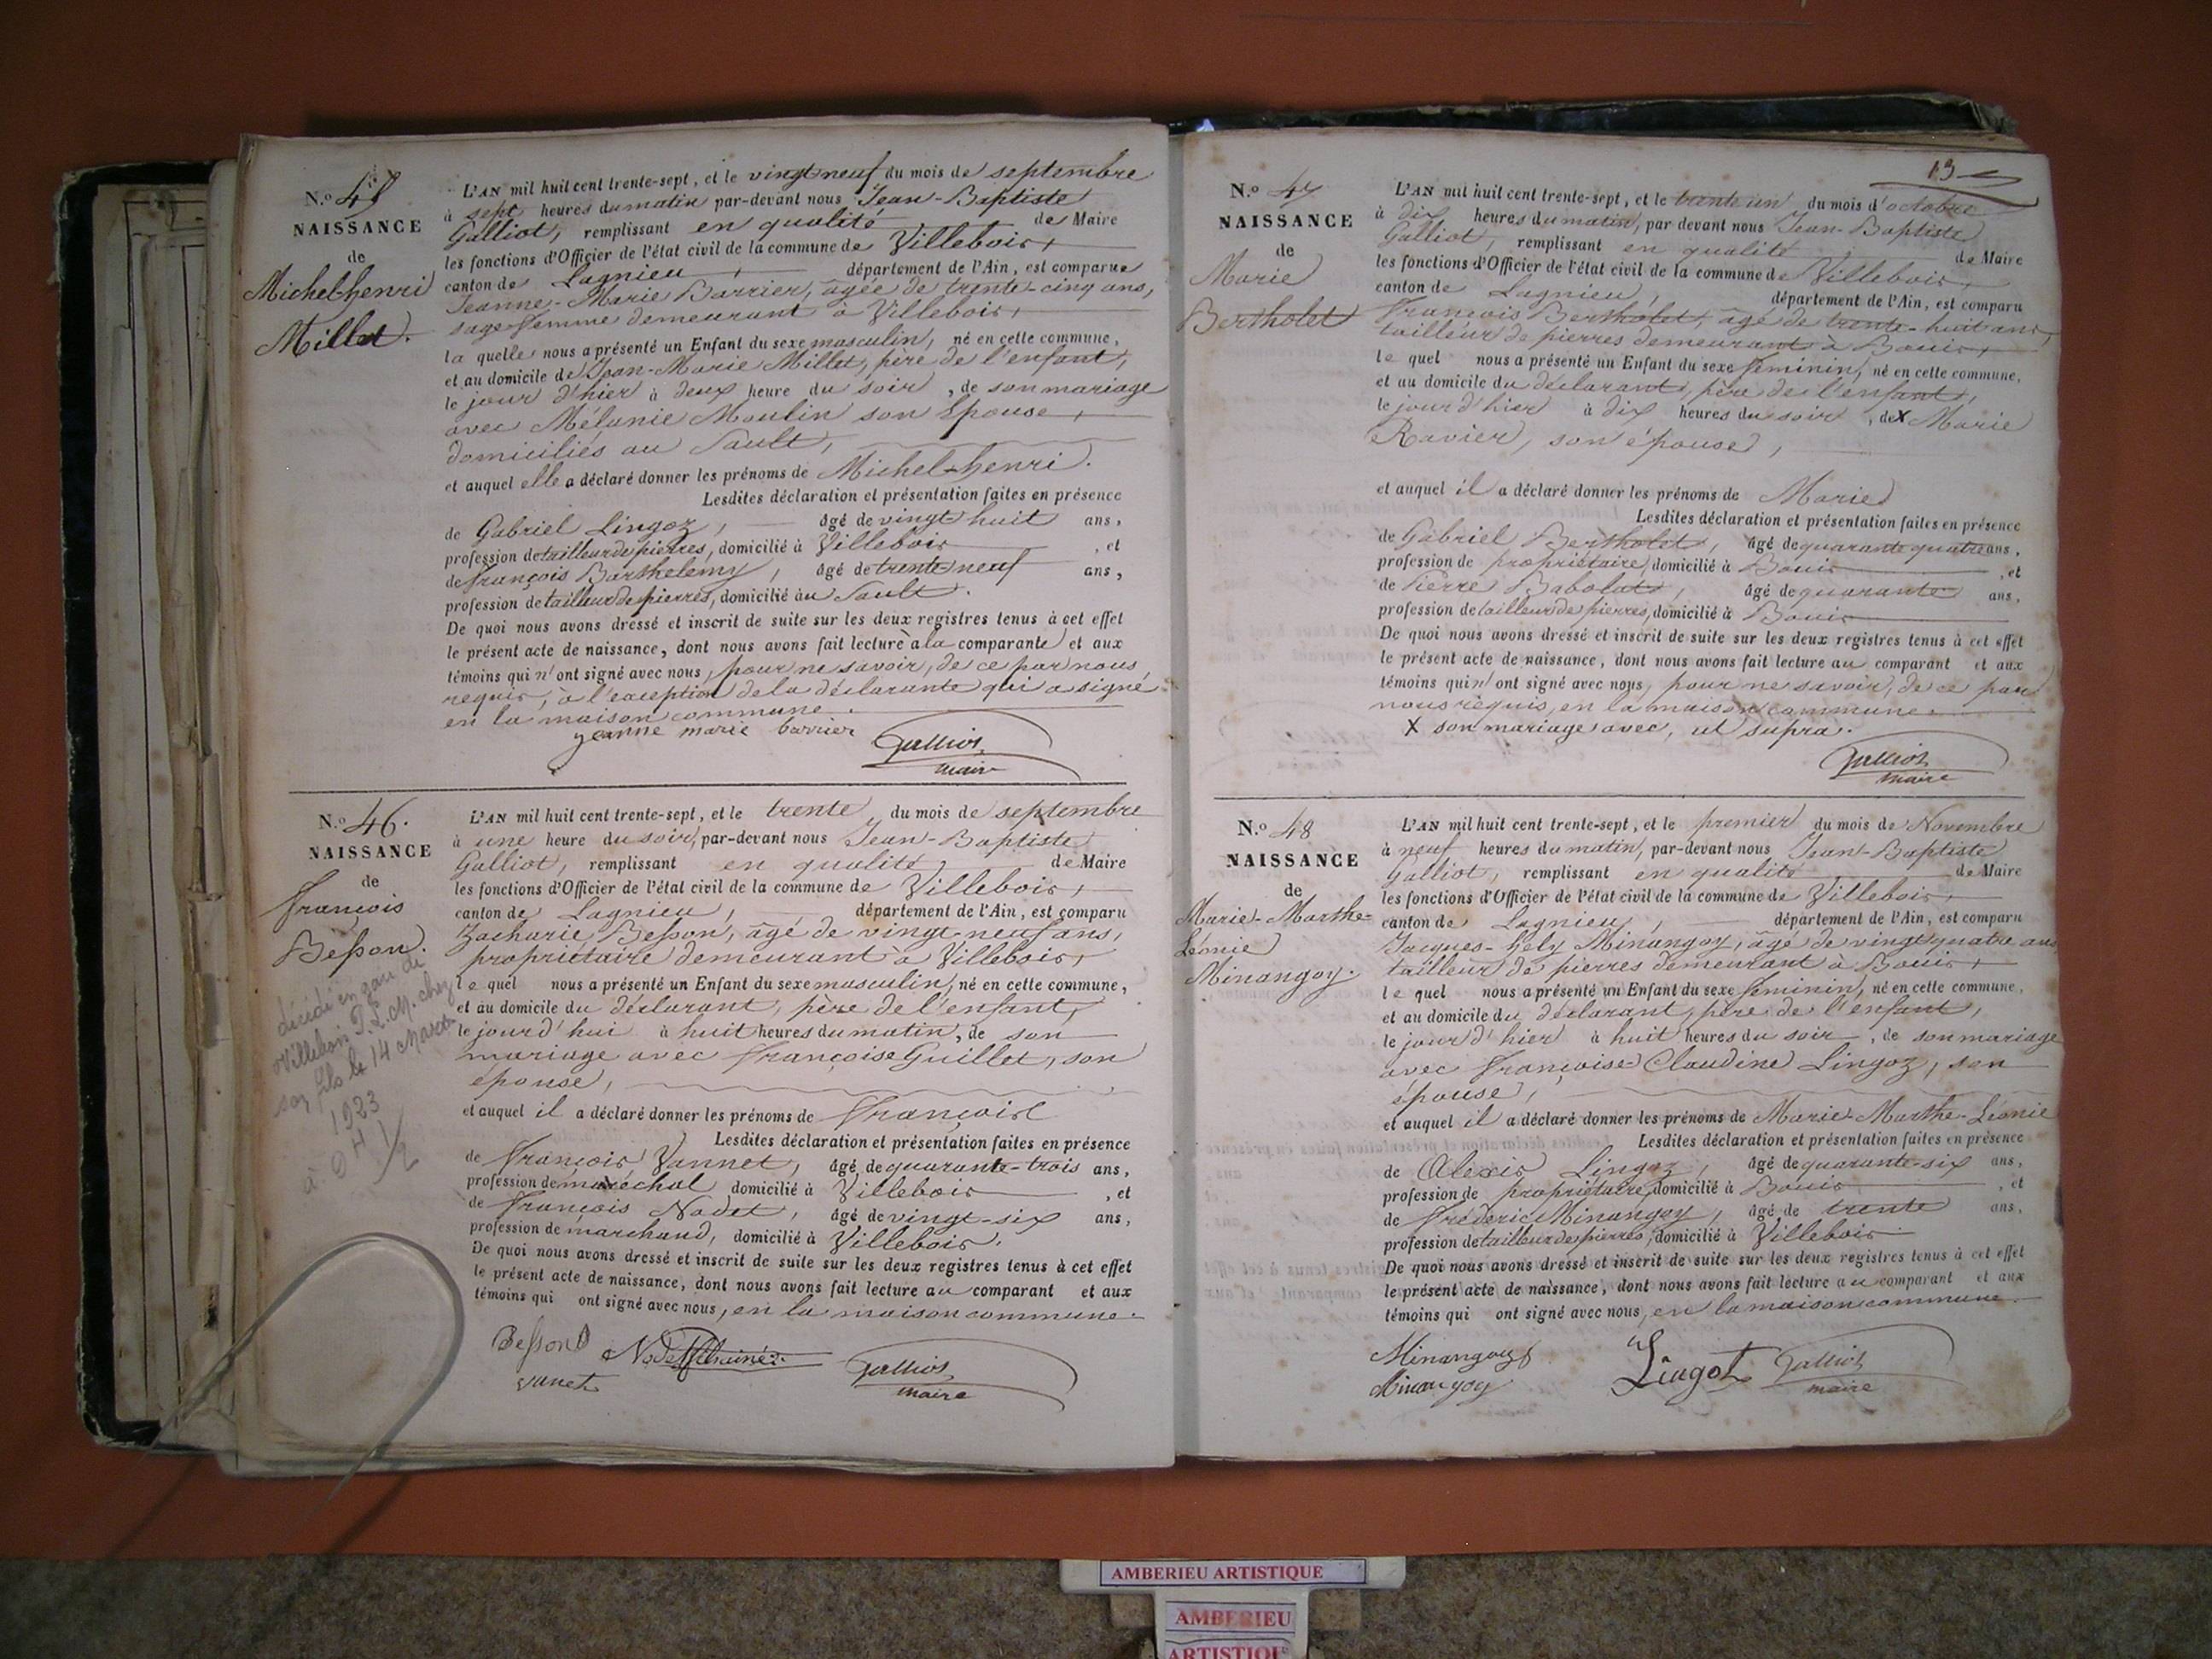 N.º 45
NAISSANCE
de
Michel-henri
Millet.
L'AN mil huit cent trente-sept, et le vingt neuf du mois de septembre
à sept heures du matin par-devant nous Jean-Baptiste
Galliot, remplissant en qualité de Maire
les fonctions d'Officier de l'état civil de la commune de Villebois,
canton de Lagnieu, département de l'Ain, est comparue
Jeanne-Marie Barrier, âgée de trente-cinq ans,
sage femme demeurant à Villebois,
la quelle nous a présenté un Enfant du sexe masculin, né en cette commune,
et au domicile de Jean-Marie Millet, père de l'enfant,
le jour d'hier à deux heure du soir, de son mariage
avec Mélanie Moulin son Epouse,
domiciliés au Sault,
et auquel elle a déclaré donner les prénoms de Michel-henri.
Lesdites déclaration et présentation faites en présence
de Gabriel Lingoz, âgé de vingt huit ans,
profession de tailleur de pierres, domicilié à Villebois, et
de françois Barthelemy, âgé de trente neuf ans,
profession de tailleur de pierres, domicilié au Sault.
De quoi nous avons dressé et inscrit de suite sur les deux registres tenus à cet effet
le présent acte de naissance, dont nous avons fait lecture à la comparante et aux
témoins qui n'ont signé avec nous, pour ne savoir, de ce par nous
requis, à l'exception de la déclarante qui a signé
en la maison commune.
jeanne marie barrier Galliot
maire
N.º 46.
NAISSANCE
de
François
Besson.
décédé en gare de
Villebois P.L.M. chez
son fils le 14 Mars
1923
à 0 H 1/2
L'AN mil huit cent trente-sept, et le trente du mois de septembre
à une heure du soir, par-devant nous Jean-Baptiste
Galliot, remplissant en qualité de Maire
les fonctions d'Officier de l'état civil de la commune de Villebois,
canton de Lagnieu, département de l'Ain, est comparu
Zacharie Besson, âgé de vingt-neuf ans,
propriétaire demeurant à Villebois,
le quel nous a présenté un Enfant du sexe masculin, né en cette commune,
et au domicile du déclarant, père de l'enfant,
le jour d'hui à huit heures du matin, de son
mariage avec Françoise Guillet, son
épouse,
et auquel il a déclaré donner les prénoms de François
Lesdites déclaration et présentation faites en présence
de François Vannet, âgé de quarante-trois ans,
profession de maréchal domicilié à Villebois, et
de François Nodet, âgé de vingt-six ans,
profession de marchand, domicilié à Villebois.
De quoi nous avons dressé et inscrit de suite sur les deux registres tenus à cet effet
le présent acte de naissance, dont nous avons fait lecture au comparant et aux
témoins qui ont signé avec nous, en la maison commune.
Besson Galliot
vanet maire
13
N.º 47
NAISSANCE
de
Marie
Bertholet
L'AN mil huit cent trente-sept, et le trente un du mois d'octobre
à dix heures du matin, par devant nous Jean-Baptiste
Galliot, remplissant en qualité de Maire
les fonctions d'Officier de l'état civil de la commune de Villebois,
canton de Lagnieu, département de l'Ain, est comparu
François Bertholet, âgé de trente-huit ans,
tailleur de pierres demeurant à Bouis,
le quel nous a présenté un Enfant du sexe féminin, né en cette commune,
et au domicile du déclarant, père de l'enfant,
le jour d'hier à dix heures du soir, de X Marie
Ravier, son épouse,
et auquel il a déclaré donner les prénoms de Marie
Lesdites déclaration et présentation faites en présence
de Gabriel Bertholet, âgé de quarante quatre ans,
profession de propriétaire, domicilié à Bouis, et
de Pierre Babolat, âgé de quarante ans,
profession de tailleur de pierres, domicilié à Bouis
De quoi nous avons dressé et inscrit de suite sur les deux registres tenus à cet effet
le présent acte de naissance, dont nous avons fait lecture au comparant et aux
témoins qui n'ont signé avec nous, pour ne savoir, de ce par
nous requis, en la maison commune.
X son mariage avec, ut supra.
Galliot
maire
N.º 48
NAISSANCE
de
Marie-Marthe-
Léonie
Minangoy.
L'AN mil huit cent trente-sept, et le premier du mois de Novembre
à neuf heures du matin, par-devant nous Jean-Baptiste
Galliot, remplissant en qualité de Maire
les fonctions d'Officier de l'état civil de la commune de Villebois,
canton de Lagnieu, département de l'Ain, est comparu
Jacques-Gely Minangoy, âgé de vingt quatre ans
tailleur de pierres demeurant à Bouis,
le quel nous a présenté un Enfant du sexe féminin, né en cette commune,
et au domicile du déclarant, père de l'enfant,
le jour d'hier à huit heures du soir, de son mariage
avec Françoise Claudine Lingoz, son
épouse,
et auquel il a déclaré donner les prénoms de Marie-Marthe-Léonie
Lesdites déclaration et présentation faites en présence
de Alexis Lingoz, âgé de quarante-six ans,
profession de propriétaire, domicilié à Bouis, et
de Fréderic Minangoy, âgé de trente ans,
profession de tailleur de pierres, domicilié à Villebois
De quoi nous avons dressé et inscrit de suite sur les deux registres tenus à cet effet
le présent acte de naissance, dont nous avons fait lecture au comparant et aux
témoins qui ont signé avec nous, en la maison commune.
Minangoy Lingot Galliot
Minangoy maire
AMBERIEU ARTISTIQUE
AMBERIEU
ARTISTIQUE